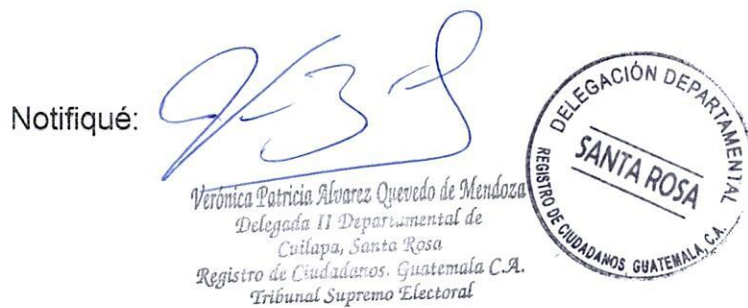 Notifiqué:
Verónica Patricia Alvarez Quevedo de Mendoza
Delegada II Departamental de
Cuilapa, Santa Rosa
Registro de Ciudadanos. Guatemala C.A.
Tribunal Supremo Electoral
DELEGACIÓN DEPARTAMENTAL
SANTA ROSA
REGISTRO DE CIUDADANOS GUATEMALA, C.A.